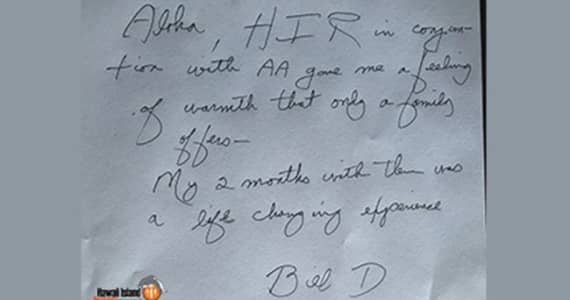 Aloha, HIR in conjunc-
tion with AA gave me a feeling
of warmth that only a family
offers-
My 2 months with them was
a life changing experience
Bill D
Hawaii Island